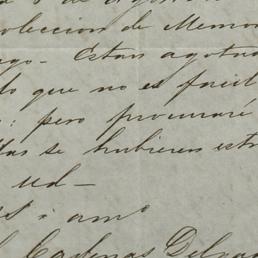 oleccion de Memor
ago - Estan agotad
do que no es facil
: pero procuraré
llas se hubieren estr
ud -
S i amº
Cadenas Delga